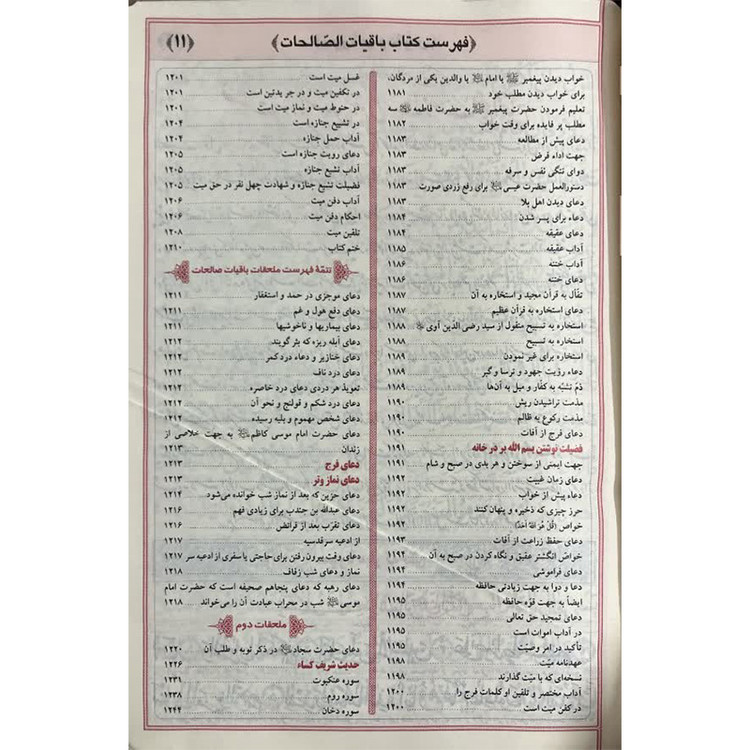 ﴿فهرست کتاب باقیات الصّالحات﴾
﴿۱۱﴾
خواب دیدن پیغمبر ﷺ یا امام یا والدین یکی از مردگان،
برای خواب دیدن مطلب خود ۱۱۸۱
تعلیم فرمودن حضرت پیغمبر ﷺ به حضرت فاطمه سه
مطلب پر فایده برای وقت خواب ۱۱۸۲
دعای پیش از مطالعه ۱۱۸۳
جهت اداء قرض ۱۱۸۳
دوای تنگی نفس و سرفه ۱۱۸۳
دستورالعمل حضرت عیسی برای رفع زردی صورت ۱۱۸۳
دعای دیدن اهل بلا ۱۱۸۳
دعاء برای پسر شدن ۱۱۸۴
دعای عقیقه ۱۱۸۴
آداب عقیقه ۱۱۸۵
آداب ختنه ۱۱۸۶
دعای ختنه ۱۱۸۶
تفأّل به قرآن مجید و استخاره به آن ۱۱۸۷
دعای استخاره به قرآن عظیم ۱۱۸۷
استخاره به تسبیح منقول از سید رضی الدّین آوی ۱۱۸۸
استخاره به تسبیح ۱۱۸۸
استخاره برای غیر نمودن ۱۱۸۸
دعاء رؤیت جهود و ترسا و گبر ۱۱۸۹
ذمّ تشبّه به کفّار و میل به آن‌ها ۱۱۸۹
مذمت تراشیدن ریش ۱۱۹۰
مذمت رکوع به ظالم ۱۱۹۰
دعای فرج از آفات ۱۱۹۰
فضیلت نوشتن بسم الله بر در خانه ۱۱۹۱
جهت ایمنی از سوختن و هر بدی در صبح و شام ۱۱۹۱
دعای زمان غیبت ۱۱۹۱
دعاء پیش از خواب ۱۱۹۲
حرز چیزی که ذخیره و پنهان کنند ۱۱۹۲
خواص (قُل هُوَ اللهُ اَحَدٌ) ۱۱۹۲
دعای حفظ زراعت از آفات ۱۱۹۳
خواصّ انگشتر عقیق و نگاه کردن در صبح به آن ۱۱۹۴
دعای فراموشی ۱۱۹۴
دعا و دوا به جهت زیادتی حافظه ۱۱۹۴
ایضاً به جهت قوّه حافظه ۱۱۹۵
دعای تمجید حق تعالی ۱۱۹۵
در آداب اموات است ۱۱۹۵
تأکید در امر وصیّت ۱۱۹۵
عهدنامه میّت ۱۱۹۸
نسخه‌ای که با میّت گذارند ۱۱۹۸
آداب مختصر و تلقین او کلمات فرج را ۱۲۰۰
در کفن میت است ۱۲۰۰
غسل میت است ۱۲۰۱
در تکفین میت و در جر یدتین است ۱۲۰۱
در حنوط میت و نماز میت است ۱۲۰۱
در تشییع جنازه است ۱۲۰۴
آداب حمل جنازه ۱۲۰۴
دعای رویت جنازه است ۱۲۰۵
آداب تشیع جنازه ۱۲۰۵
فضیلت تشیع جنازه و شهادت چهل نفر در حق میت ۱۲۰۵
آداب دفن میت ۱۲۰۶
احکام دفن میت ۱۲۰۶
تلقین میت ۱۲۰۸
ختم کتاب ۱۲۱۰
تتمّهٔ فهرست ملحقات باقیات صالحات
دعای موجزی در حمد و استغفار ۱۲۱۱
دعای دفع هول و غم ۱۲۱۱
دعای بیماریها و ناخوشیها ۱۲۱۱
دعای آبله ریزه که بثر گویند ۱۲۱۲
دعای خنازیر و دعاء درد کمر ۱۲۱۲
دعای درد ناف ۱۲۱۲
تعویذ هر دردی دعای درد خاصره ۱۲۱۲
دعای درد شکم و قولنج و نحو آن ۱۲۱۲
دعای شخص مهموم و بلیه رسیده ۱۲۱۲
دعای حضرت امام موسی کاظم به جهت خلاصی از
زندان ۱۲۱۳
دعای فرج ۱۲۱۳
دعای نماز وتر ۱۲۱۳
دعای حزین که بعد از نماز شب خوانده می‌شود ۱۲۱۴
دعای عبدالله بن جندب برای زیادی فهم ۱۲۱۶
دعای تقرّب بعد از فرائض ۱۲۱۶
از ادعیه سرقدسیه ۱۲۱۷
دعای وقت بیرون رفتن برای حاجتی یا سفری از ادعیه سر ۱۲۱۷
نماز و دعای شب زفاف ۱۲۱۸
دعای رهبه که دعای پنجاهم صحیفه است که حضرت امام
موسی شب در محراب عبادت آن را می‌خواند ۱۲۱۸
ملحقات دوم
دعای حضرت سجاد در ذکر توبه و طلب آن ۱۲۲۰
حدیث شریف کساء ۱۲۲۶
سوره عنکبوت ۱۲۳۱
سوره روم ۱۲۳۸
سوره دخان ۱۲۴۴